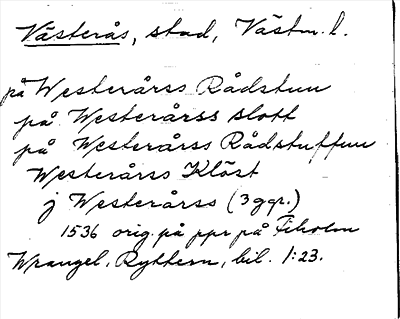 Västerås, stad, Västm. l.
på Westerårss Rådstun
på Westerårss slott
på Westerårss Rådstuffun
Westerårss Klöst
j Westerårss (3 ggr.)
1536 orig. på ppr på Fiholm
Wrangel, Ryttern, bil. 1:23.